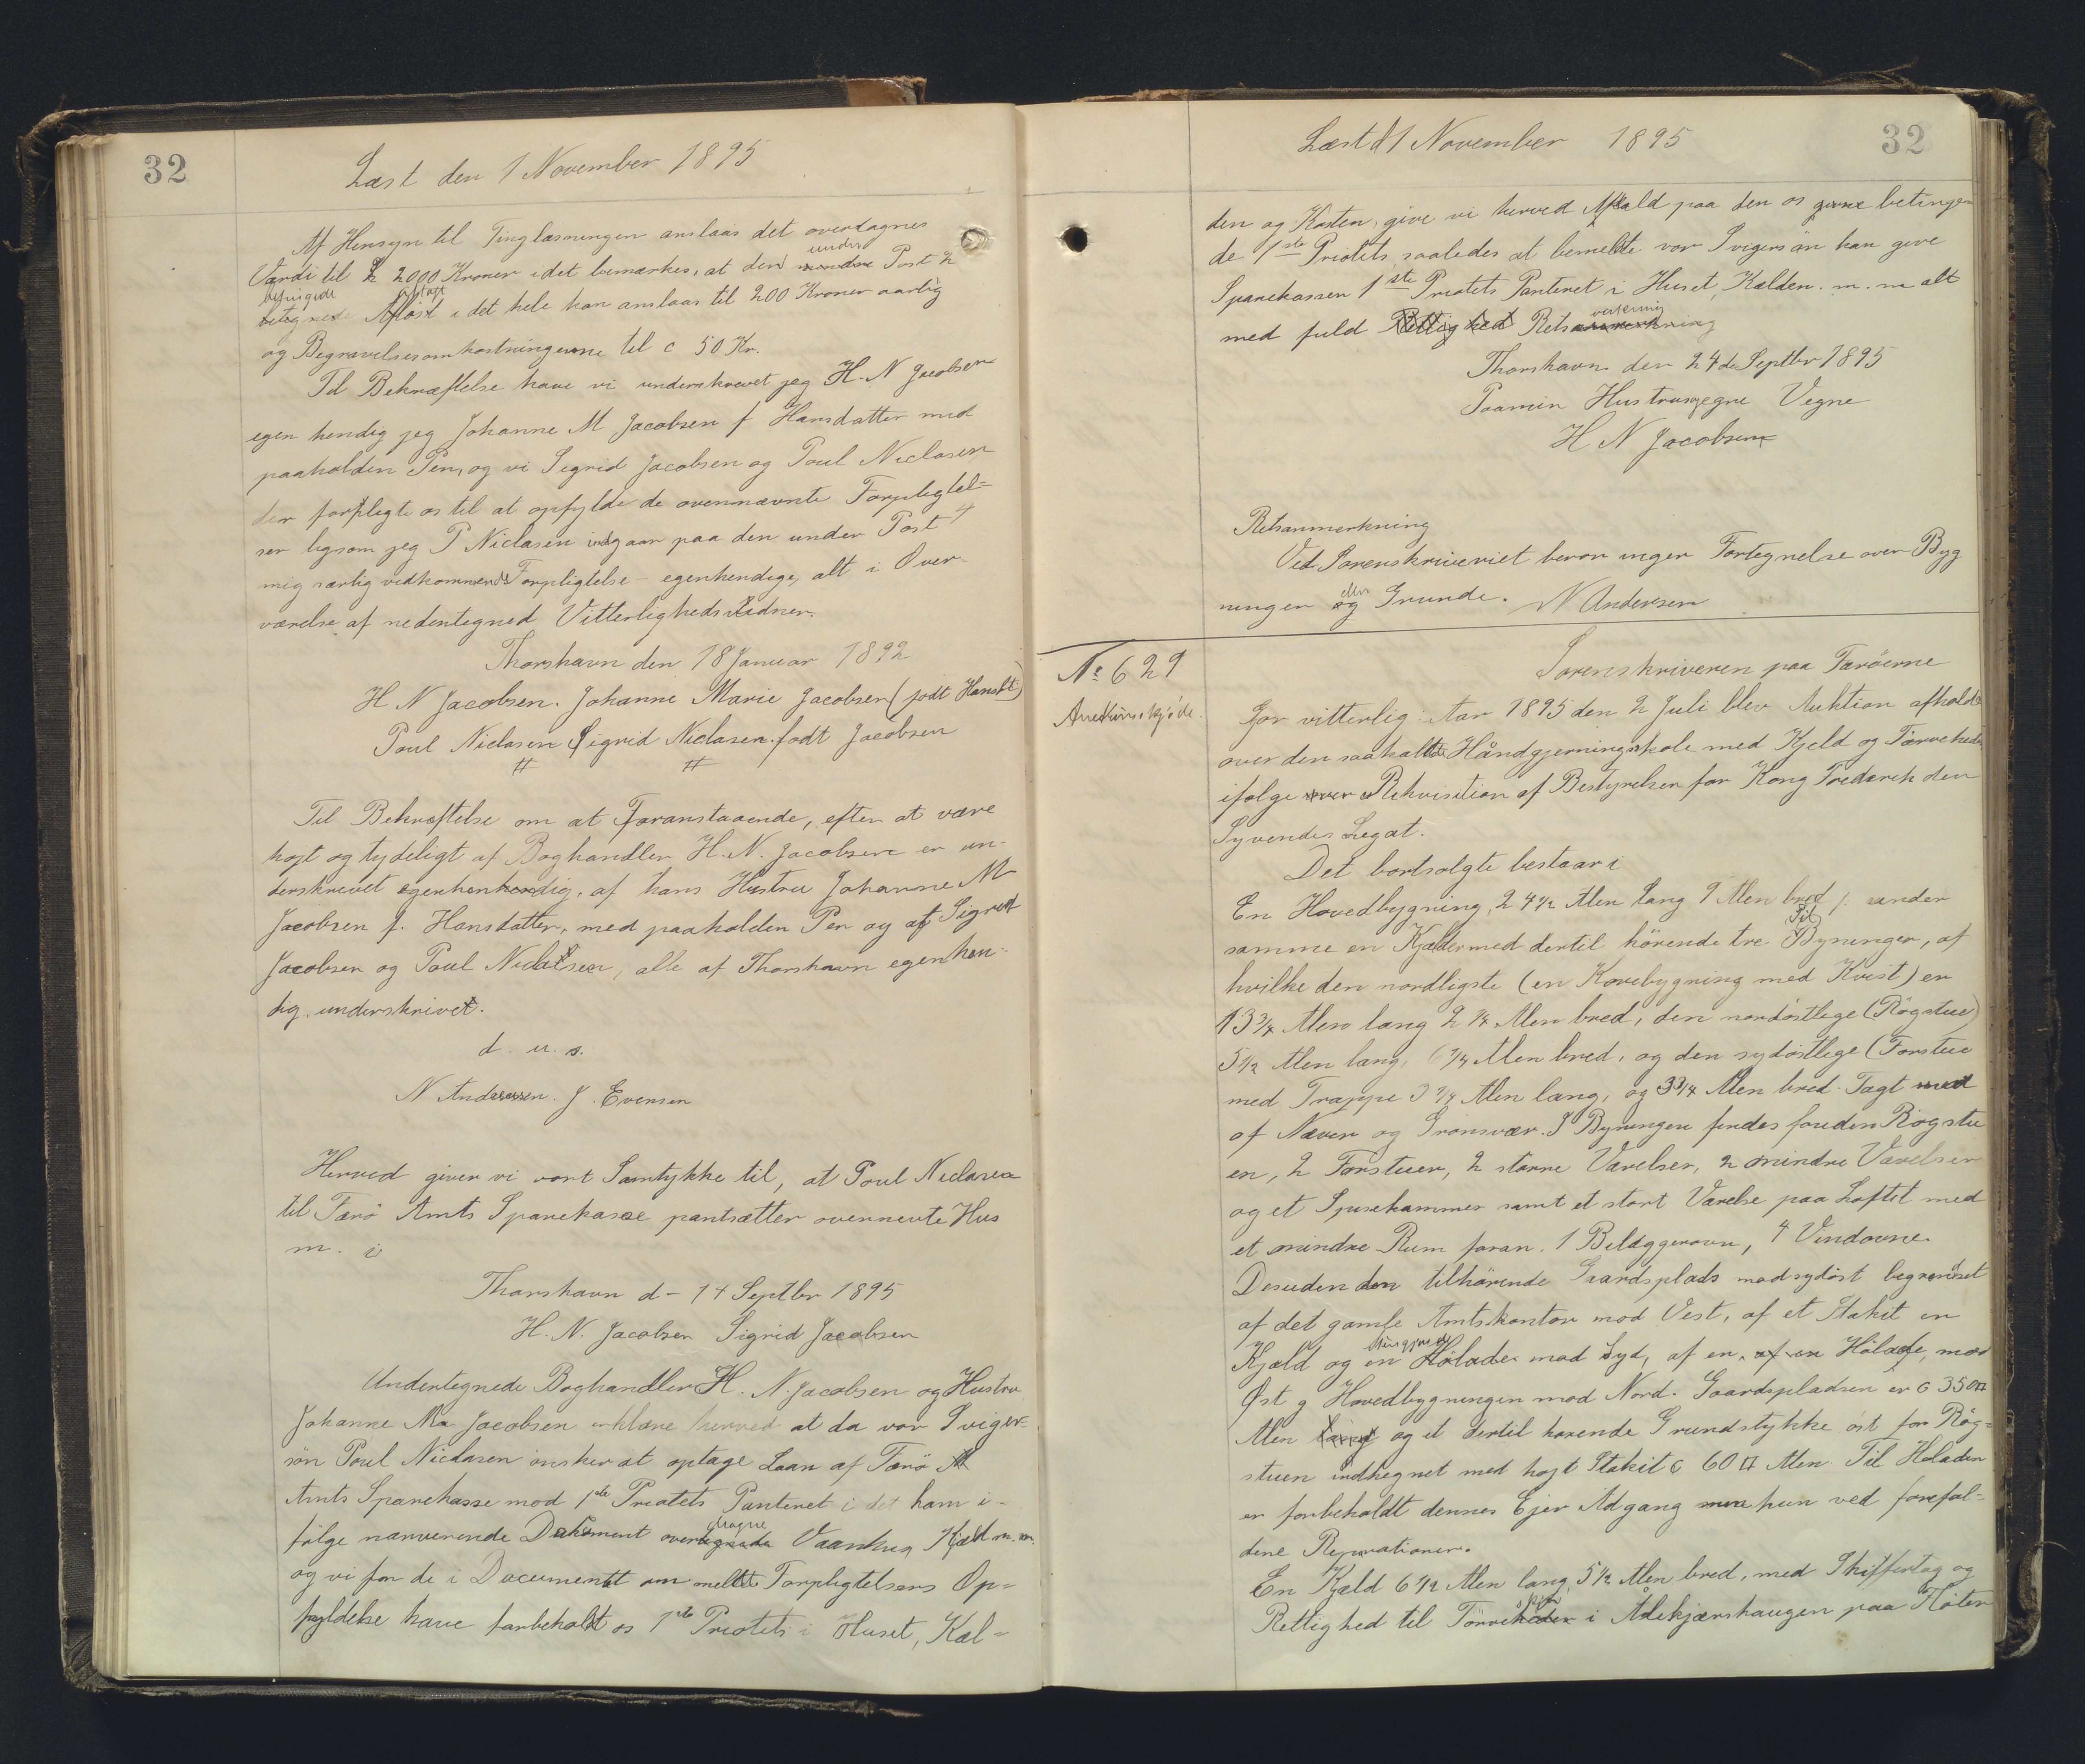 32
Læst den 1 November 1895
Af Hensyn til Tinglæsningen anslaas det overdagnes
Værdi til 2000 Kroner idet bemærkes, at den under Post 2
betingede Aftægt i det hele kan anslaas til 200 Kroner aarlig
og Begravelsesomkostningerne til c 50 Kr.
Til Bekræftelse have vi underskrevet jeg H. N Jacobsen
egen hendig jeg Johanne M Jacobsen f Hansdatter med
paaholden Pen, og vi Sigrid Jacobsen og Poul Niclasen
der forpligte os til at opfylde de ovennævnte Forpligtel=
ser ligsom jeg P Niclasen indgaar paa den under Post 4
mig særlig vedkommende Forpligtelse – egenhendige, alt i Over-
værelse af nedentegned Vitterlighedsvidner.
Thorshavn den 18 Januar 1892
H N Jacobsen. Johanne Marie Jacobsen (født Hansdt)
Poul Niclasen Sigrid Niclasen. født Jacobsen
Til Bekræftelse om at Foranstaaende, efter at være
højt og tydeligt af Boghandler H. N. Jacobsen er un-
derskrevet egenhenhendig, af hans Hustru Johanne M
Jacobsen f. Hansdatter, med paaholden Pen og af Sigrid
Jacobsen og Poul Niclasen, alle af Thorshavn egenhen-
dig underskrivet.
d. u. s.
N Andersen. J. Evensen
Herved giver vi vort Samtykke til, at Poul Niclasen
til Færø Amts Sparekasse pantsætter ovennevnte Hus
m. v
Thorshavn d – 14 Septbr 1895
H. N. Jacobsen Sigrid Jacobsen
Undertegnede Boghandler H. N. Jacobsen og Hustru
Johanne Ma Jacobsen erklære herved at da vor Sviger-
søn Poul Niclasen ønsker at optage Laan af Færø
Amts Sparekasse mod 1ste Priotets Panteret i det ham i-
følge nærværende Dokument overdragne Vaanhus Kjæld m. m.
og vi for de i Documentet om meldte Forpligtelsers Op=
fyldelse have forbeholdt os 1ste Priotets i Huset, Kæl=
32
Læst d 1 November 1895
den og Hosten, give vi herved Afkald paa den os givne betinge
de 1ste Priotets saaledes at bemeldte vor Svigersøn kan give
Sparekassen 1ste Priotets Panteret i Huset, Kælden. m. m alt
med fuld Retsverkning
Thorshavn den 24de Septbr 1895
Paa min Hustrus egne Vegne
H N Jacobsen
Retsanmerkning
Ved Sorenskriveriet beror ingen Fortegnelse over Byg
ningen eller Grunde. N Andersen
No 629
Auktionsskjöde.
Sorenskriveren paa Færöerne
Gør vitterlig: Aar 1895 den 2 Juli blev Auktion afholdt
over den saakaldte Håndgjerningsskole med Kjeld og Tørvehede
ifølge Rekvisition af Bestyrelsen for Kong Frederik den
Syvendes Legat.
Det bortsolgte bestaar i
En Hovedbygning, 24 1/2 Alen lang 9 Alen bred /: under
samme en Kjælder med dertil hörende tre Sidbyninger, af
hvilke den nordligste (en Kovebygning med Kvist) er
13 3/4 Alen lang 2 1/4 Alen bred, den nordöstlege (Rögstue)
5 1/2 Alen lang, 6 3/4 Alen bred, og den sydöstlege (Forstue
med Trappe 3 3/4 Alen lang, og 3 3/4 Alen bred. Tagt
af Næver og Grønsvær. I Byningen findes foruden Rögstu
en, 2 Forstuer, 2 större Værelser, 2 mindre Værelser
og et Spisekammer samt et stort Værelse paa Loftet med
et mindre Rum foran. 1 Bilæggerovn, 4 Vindovne.
Desuden den tilhörende Gaardsplads mod sydöst begrænset
af det gamle Amtskontor mod Vest, af et Stakit en
Kjæld og en Hölade mod Syd, af en Hölade, mod
Øst g Hovedbygningen mod Nord. Gaardspladsen er c 350 □
Alen og et dertil hørende Grundstykke öst for Rög=
stuen indhegnet med højt Stakit c 60 □ Alen. Til Höladen
er forbeholdt dennes Ejer Adgang kun ved forefal=
dene Reparationer.
En Kjæld 6 1/2 Alen lang, 5 1/2 Alen bred, med Skiffertag og
Rettighed til Törveskjær i Ålekjærshaugen paa Flåten